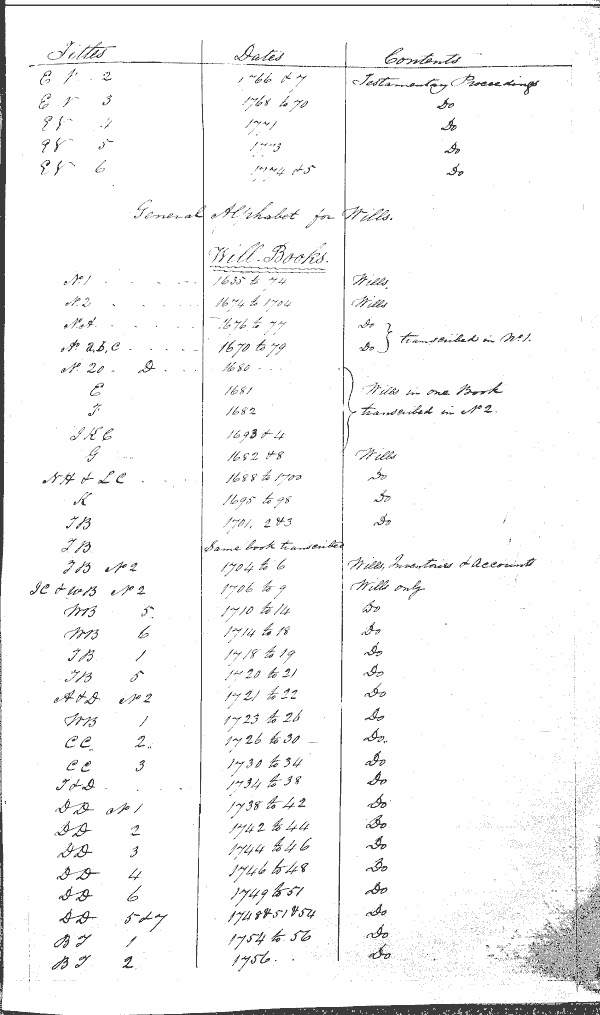 Titles Dates Contents
E V 2 1766 & 7 Testamentary Proceedings
E V 3 1768 to 70 Do
E V 4 1771 Do
E V 5 1773 Do
E V 6 1774 & 5 Do
General Alphabet for Wills.
Will Books.
No. 1 1635 to 74 Wills.
No. 2 1674 to 1704 Wills
No. A 1676 to 77 Do
transcribed in No. 1.
No. a, b, c 1670 to 79 Do
No. 20 D 1680
E 1681 Wills in one Book
F 1682 transcribed in No. 2.
1693 & 4
G 1682 & 8 Wills
NH & LC 1688 to 1700 Do
K 1695 to 98 Do
TB 1701, 2 & 3 Do
TB Same book transcribed
TB No. 2 1704 to 6 Wills, Inventories & Accounts
IC & WB No. 2 1706 to 9 Wills only
WB 5. 1710 to 14 Do
WB 6 1714 to 18 Do
TB 1 1718 to 19 Do
TB 5 1720 to 21 Do
A & D No. 2 1721 to 22 Do
WB 1 1723 to 26 Do
CC. 2. 1726 to 30 Do.
CC 3 1730 to 34 Do
T & D 1734 to 38 Do
DD No. 1 1738 to 42 Do
DD 2 1742 to 44 Do
DD 3 1744 to 46 Do
DD 4 1746 to 48 Do
DD 6 1749 to 51 Do
DD 5 & 7 1748 & 51 & 54 Do
BT 1 1754 to 56 Do
BT 2 1756 Do